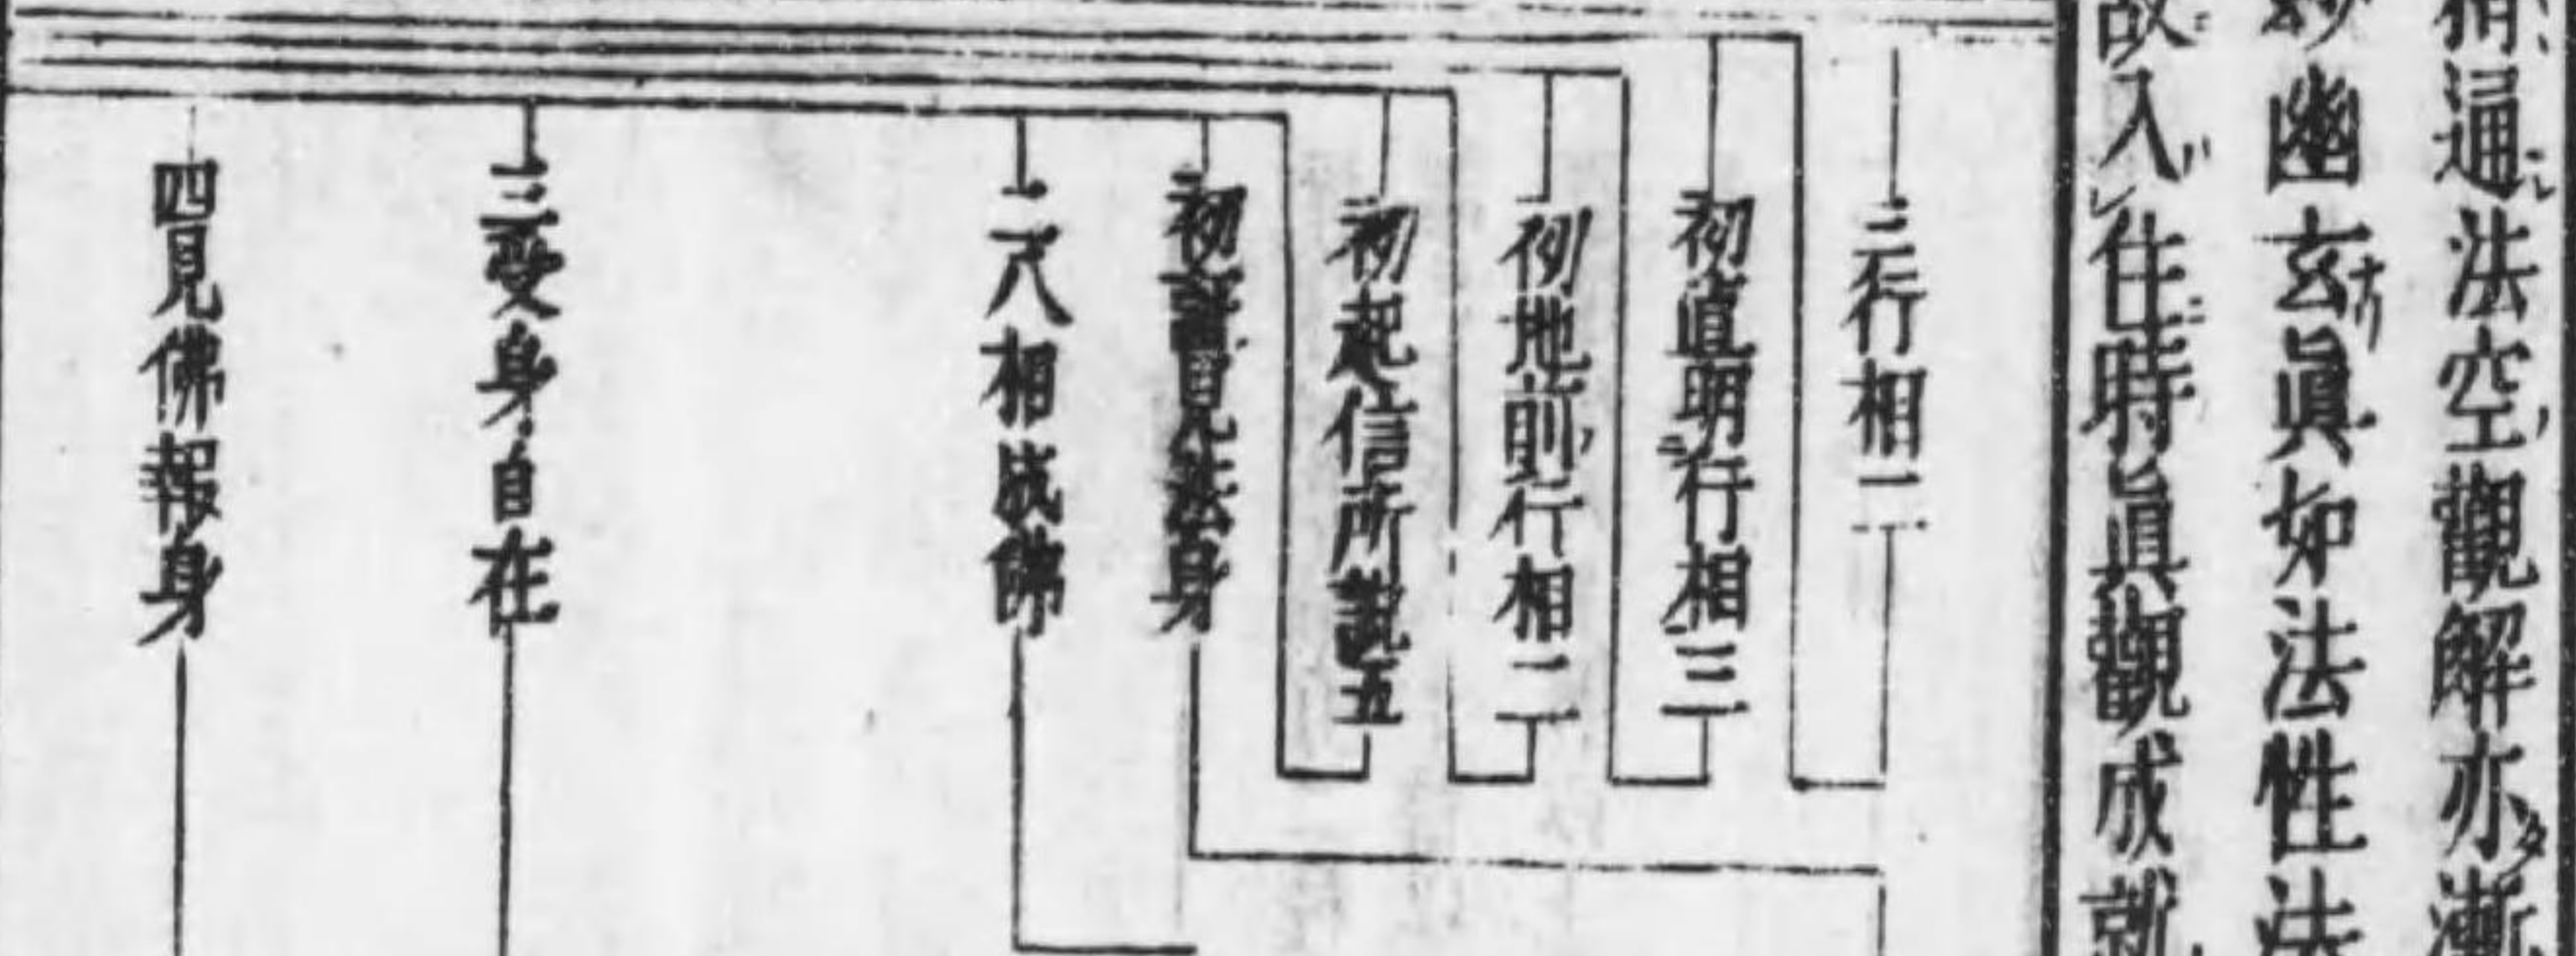 稍逼法空觀解亦漸
妙幽玄眞如法性法
故入住時眞觀成就
三行相二
初直明行相三
初地前行相二
初起信所説五
初證見法身
二八相成佛
三受身自在
四見佛報身